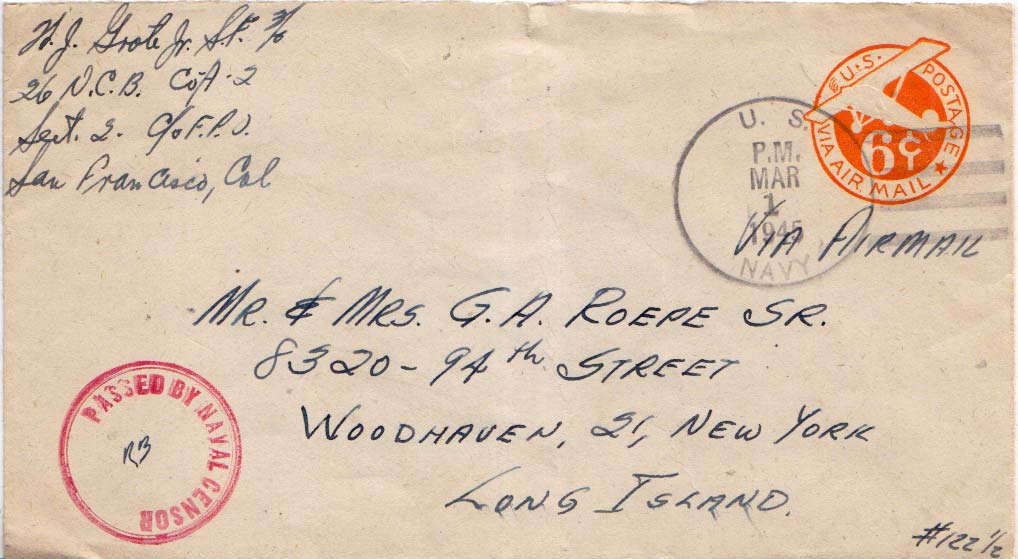 W. J. Grote Jr. S.F. 3/c
26 N.C.B. Co A-2
Sect. 2. C/o F.P.O.
San Francisco, Cal
U.S. POSTAGE
6¢
VIA AIR MAIL
U. S.
P.M.
MAR
1
1945
NAVY
VIA AIRMAIL
MR. & MRS. G. A. ROEPE SR.
8320-94th STREET
WOODHAVEN, 21, NEW YORK
LONG ISLAND.
PASSED BY NAVAL CENSOR
RB
#122 1/2